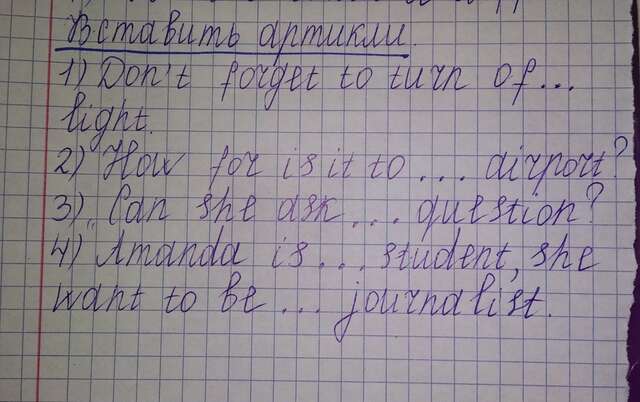 Вставить артикли.
1) Don't forget to turn of...
light.
2) How for is it to ... airport?
3) Can she ask ... question?
4) Amanda is ... student, she
want to be ... journalist.